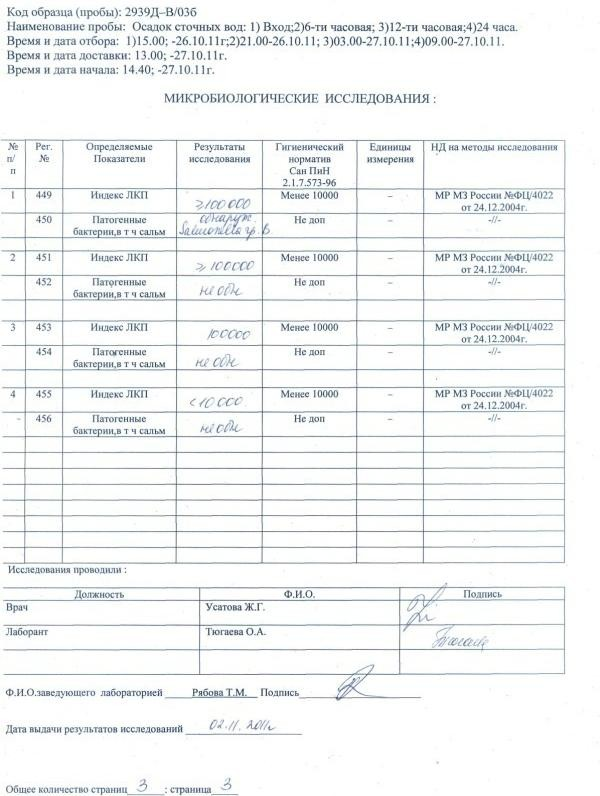 Код образца (пробы): 2939Д–В/03б
Наименование пробы: Осадок сточных вод: 1) Вход;2)6-ти часовая; 3)12-ти часовая;4)24 часа.
Время и дата отбора: 1)15.00; -26.10.11г;2)21.00-26.10.11; 3)03.00-27.10.11;4)09.00-27.10.11.
Время и дата доставки: 13.00; -27.10.11г.
Время и дата начала: 14.40; -27.10.11г.
МИКРОБИОЛОГИЧЕСКИЕ ИССЛЕДОВАНИЯ :
№ п/п Рег. № Определяемые Показатели Результаты исследования Гигиенический норматив Сан ПиН 2.1.7.573-96 Единицы измерения НД на методы исследования
1 449 Индекс ЛКП ≥100000 Менее 10000 – МР МЗ России №ФЦ/4022 от 24.12.2004г.
450 Патогенные бактерии,в т ч сальм обнаруж. Salmonella гр. В Не доп – -//-
2 451 Индекс ЛКП ≥100000 Менее 10000 – МР МЗ России №ФЦ/4022 от 24.12.2004г.
452 Патогенные бактерии,в т ч сальм не обн Не доп – -//-
3 453 Индекс ЛКП 100000 Менее 10000 – МР МЗ России №ФЦ/4022 от 24.12.2004г.
454 Патогенные бактерии,в т ч сальм не обн Не доп – -//-
4 455 Индекс ЛКП <10000 Менее 10000 – МР МЗ России №ФЦ/4022 от 24.12.2004г.
456 Патогенные бактерии,в т ч сальм не обн Не доп – -//-
Исследования проводили :
Должность Ф.И.О. Подпись
Врач Усатова Ж.Г.
Лаборант Тюгаева О.А. Тюгаева
Ф.И.О.заведующего лабораторией Рябова Т.М. Подпись
Дата выдачи результатов исследований 02.11.2011г
Общее количество страниц 3 : страница 3